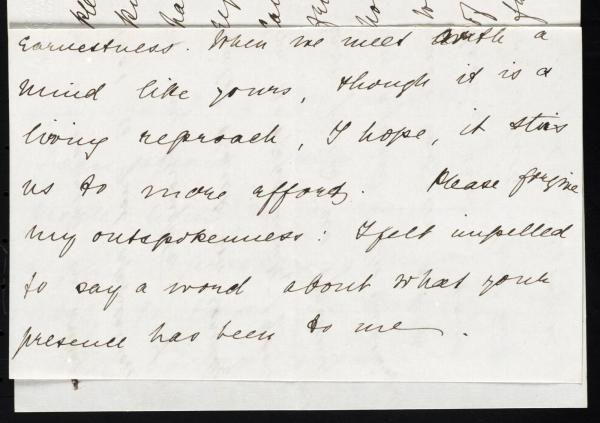 earnestness. When we meet with a
mind like yours, though it is a
living reproach, I hope, it stirs
us to more effort. Please forgive
my outspokenness: I felt impelled
to say a word about what your
presence has been to me.